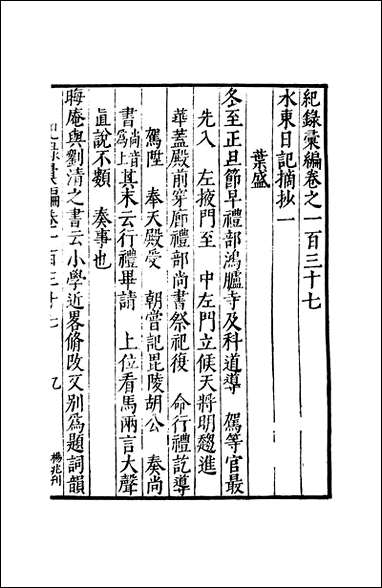 紀錄彙編卷之一百三十七
水東日記摘抄一
葉盛
冬至正旦節早禮部鴻臚寺及科道導 駕等官最
先入 左掖門至 中左門立候天將明趨進
華葢殿前穿廊禮部尚書祭祀復 命行禮訖導
駕陞 奉天殿受 朝嘗記毘陵胡公 奏尚
書尚音爲上其末云行禮畢請 上位看馬兩言大聲
眞說不類 奏事也
晦庵與劉清之書云小學近畧脩改又別爲題詞韻
紀錄彙編卷一百三十七 九 楊兆刊